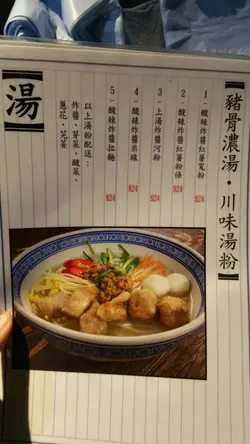 豬骨濃湯·川味湯粉
1-酸辣炸醬紅薯寬粉 $24
2-酸辣炸醬紅薯粉條 $24
3-上湯炸醬河粉 $24
4-酸辣炸醬米線 $24
5-酸辣炸醬拉麵 $24
以上湯粉配送：
炸醬、芽菜、酸菜、
蔥花、芫荽
湯